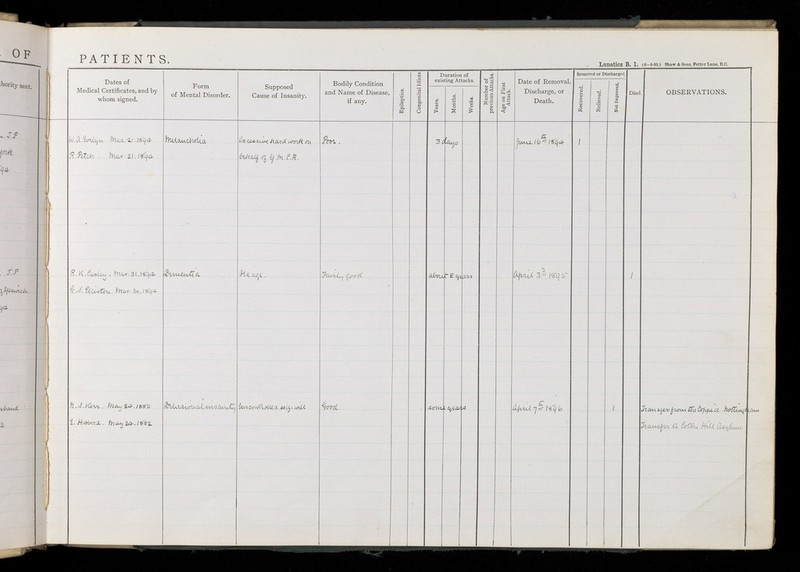 OF
hority sent.
PATIENTS.
Lunatics B. 1. Shaw & Sons, Fetter Lane, E.C.
Dates of Medical Certificates, and by whom signed.
Form of Mental Disorder.
Supposed Cause of Insanity.
Bodily Condition and Name of Disease, if any.
Epileptics.
Congenital Idiots
Duration of existing Attacks.
Years.
Months.
Weeks.
Number of previous Attacks.
Age on First Attack.
Date of Removal, Discharge, or Death.
Removed or Discharged
Recovered.
Relieved.
Not Improved.
Died
OBSERVATIONS.
J.P
Mar. 21. 1894 Melancholia Excessive hard work on Poor. 3 days June 16th 1894 1
Mar. 21. 1894 behalf of Y.M.C.A.
J.P
Mar. 31. 1894 Dementia Old age. Fairly good about 2 years April 3rd 1895 1
Mar. 30. 1894
May 24. 1882 Delusional insanity Good some years April 7th 1896 1 Transfer from the Coppice Nottingham
May 24. 1882 Transfer to Coton Hill Asylum